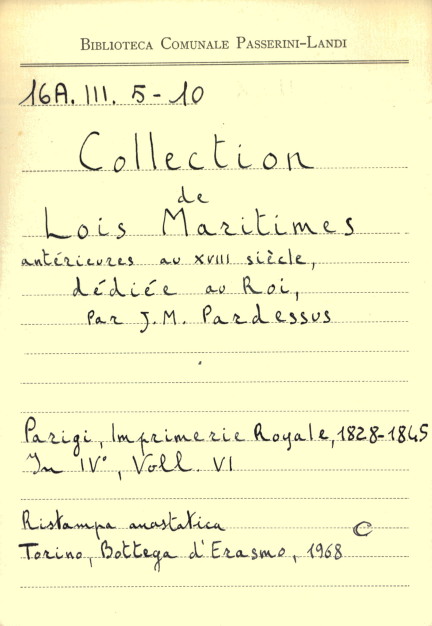 BIBLIOTECA COMUNALE PASSERINI-LANDI
16A. III. 5-10
Collection
de
Lois Maritimes
antérieures au XVIII siècle,
dédiée au Roi,
Par J.M. Pardessus
Parigi, Imprimerie Royale, 1828-1845
In IV°, Voll. VI
Ristampa anastatica
C
Torino, Bottega d'Erasmo, 1968